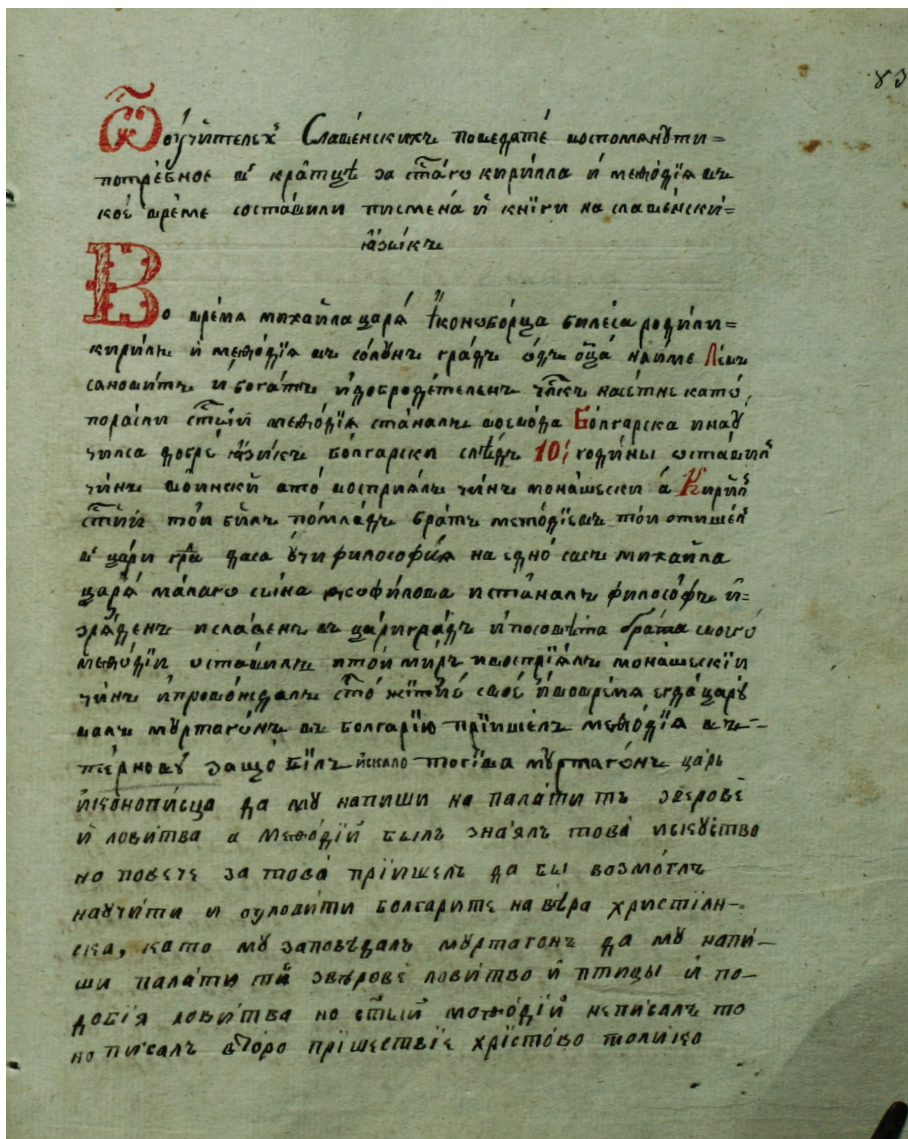 у҃г
Ѿ оучи́телѣ Славе́нскихъ поведа́те воспомянꙋти=
потре́бное в кра́тцѣ за ст҃аго кири́лла и҆ меѳо́дїꙗ въ
кое́ вре́ме соста́вили писмена́ и҆ кни́ги на славе́нски=
ꙗ҆зы́къ
Во вре́мя михаи́ла царꙗ̀ ї҆конобо́рца биле́са роди́ли=
кири́лъ и҆ меѳо́дїꙗ въ со́лꙋнъ гра́дъ ѿдъ ѻ҆ц҃а̀ на и́ме Ле́въ
санови́тъ и богатъ и҆доброде́теленъ чл҃къ насетне като́
пораслѝ ст҃ы́й меѳо́дїꙗ ста́налъ воево́да Бо́лгарска и наꙋ
чилса добре́ ꙗ҆зы́къ болга́рски слѣ́дъ 10: годи́ны ѡста́вил
чи́нъ во́инскїй ато воспрїꙗ́лъ чи́нъ мона́шески а҆ Кири́лъ
ст҃ы́й то́и билъ помла́дъ братъ меѳо́дїевъ то́и отише́л
в ца́ри гра́ даса ꙋ҆чи философи́ꙗ на едно́ съсъ михаи́ла
царꙗ̀ ма́лаго си́на ѳеофи́лова и ста́налъ филосо́фъ и҆=
зрꙗ́денъ и сла́венъ въ царигра́дъ и҆ посовѣ́та бра́та своего̀
меѳо́дїи оста́вилъ и то́й миръ и воспрїꙗ́лъ мона́шескїи
чи́нъ и҆ провожда́лъ ст҃о́ житїе́ свое́ и҆ во вре́мя егда̀ царꙋ
валъ мꙋртаго́нъ въ болга́рїю прїише́лъ меѳо́дїꙗ въ-
те́рновꙋ защо̀ би́лъ и́скало тогива мꙋртаго́нъ царь
и҆конопи́сца да мꙋ напи́ши на пала́ти тъ зверове́
и҆ лови́тва а меѳо́дїй былъ зна́ялъ това̀ искꙋ́ство
но повече за това̀ прїише́лъ да бы возмо́глъ
наꙋчи́ти и оулови́ти болга́рите на вѣ́ра христїꙗ́н-
ска, като мꙋ заповѣ́далъ мꙋртаго́нъ да мꙋ напи́-
ши пала́ти тѣ зверове́ лови́тво и҆ пти́цы и҆ по-
до́бїя лови́тва но ст҃ы́й меѳо́дїй не пи́салъ то
но пи́салъ вт́оро прїше́ствїе хрїсто́во толи́ко